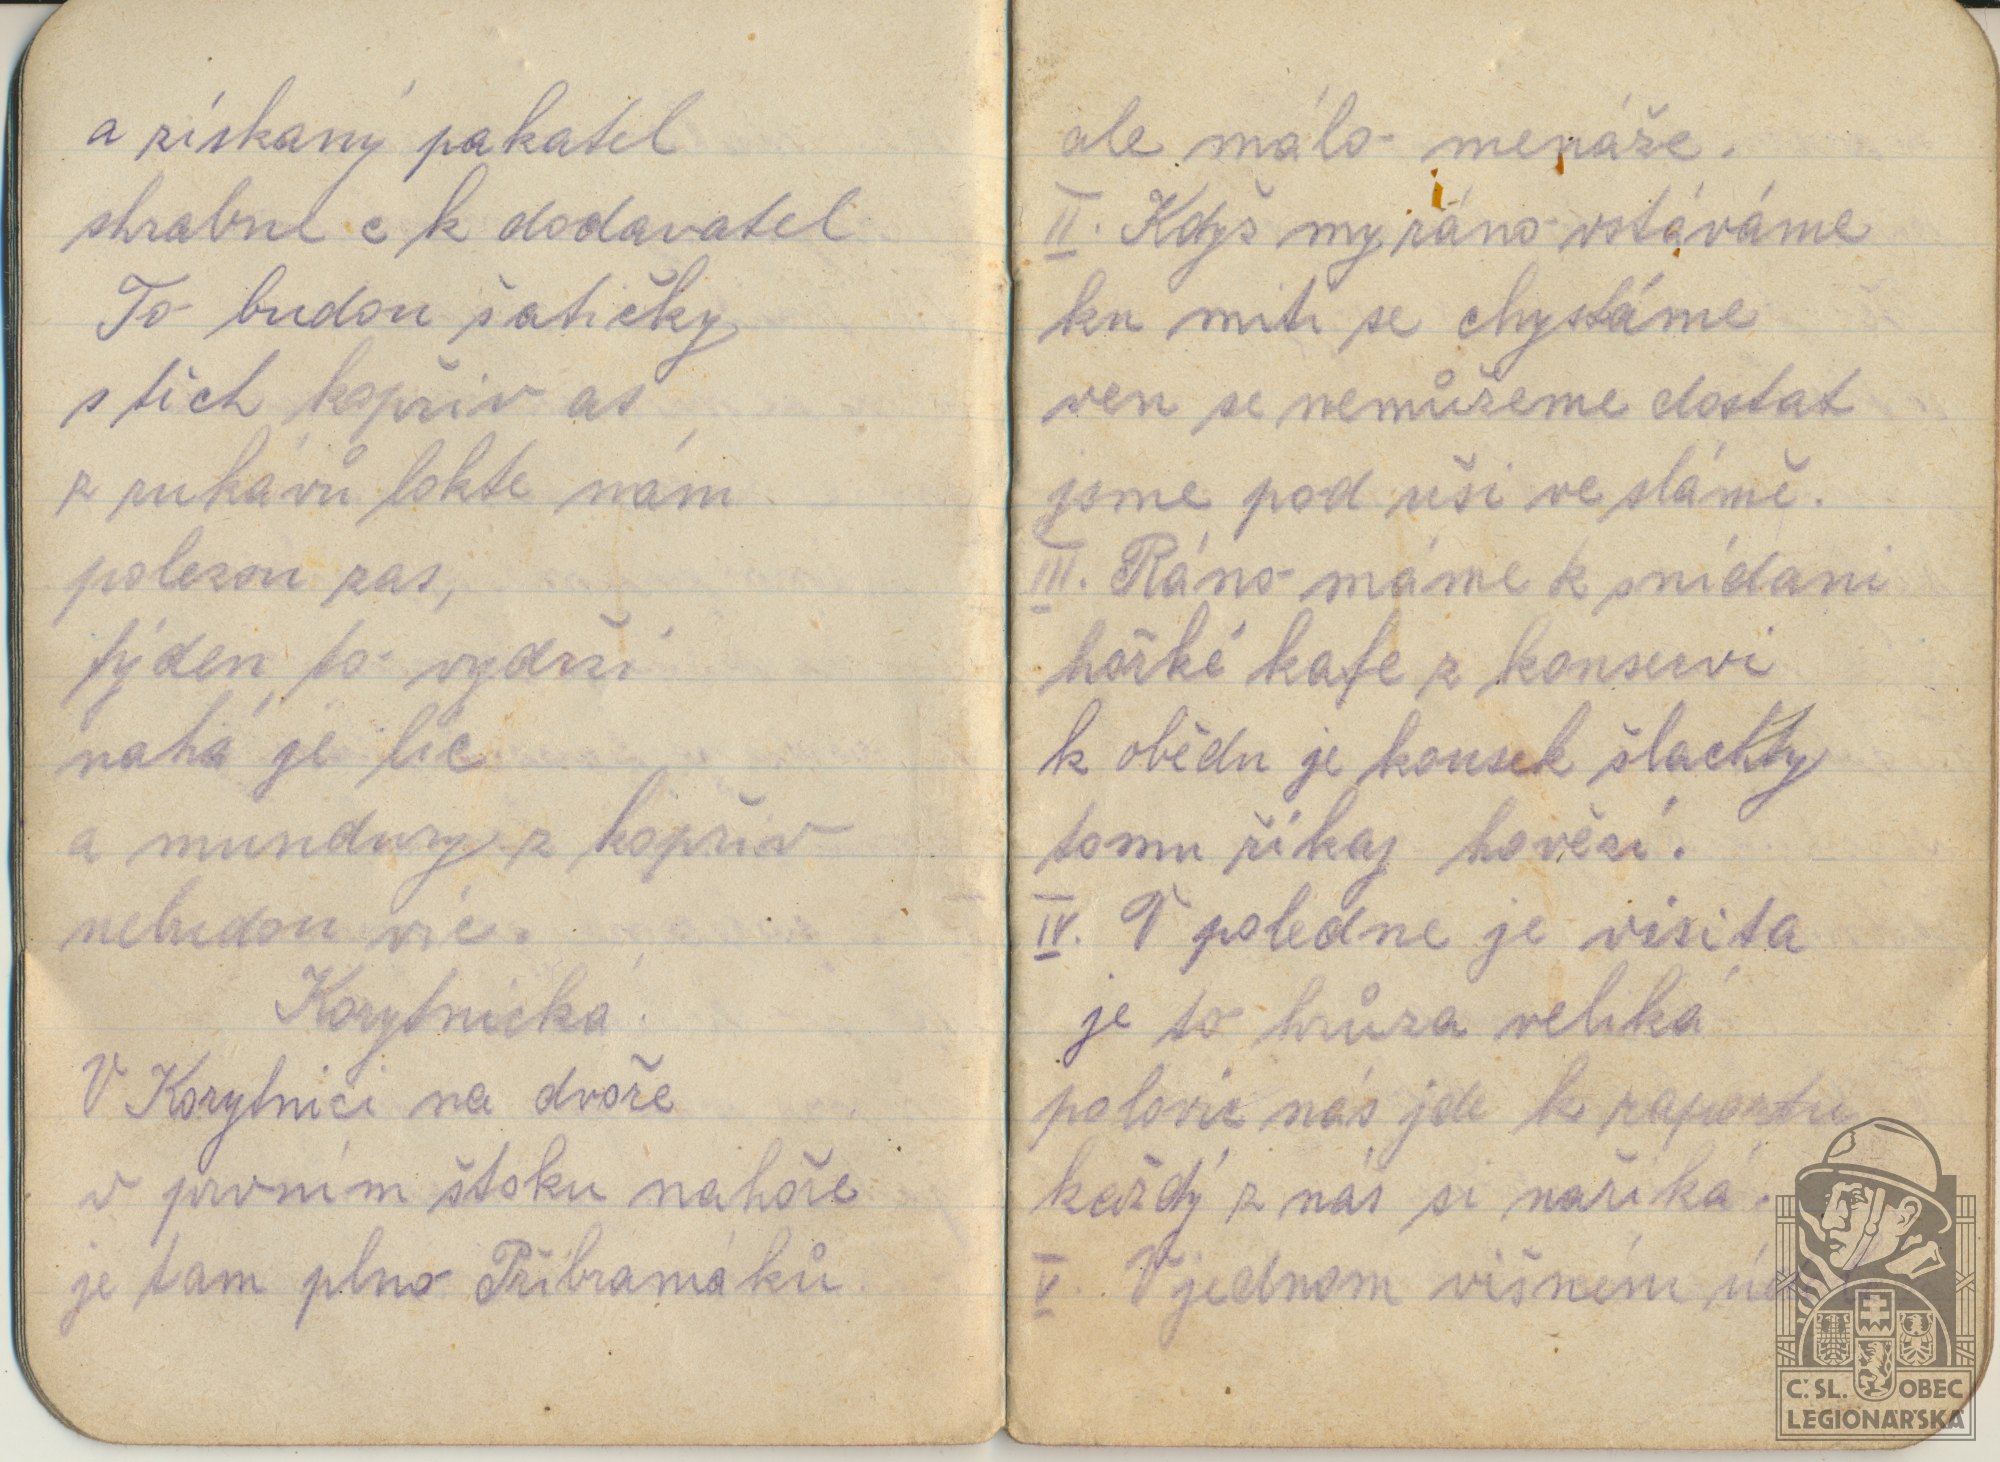 a získaný pakatel
shrabne c k dodavatel
To budou šatičky
s těch kopřiv as
z rukávů lokte nám
polezou zas,
týden to vydrží
nahá je líc
a mundury z kopřiv
nebudou víc.
Korytnická.
V Korytnici na dvoře
v prvním štoku nahoře
je tam plno Příbramáků
ale málo menáže.
II. Kdyš my ráno vstáváme
ku mití se chystáme
ven se nemůžeme dostat
jsme pod uši ve slámě.
III. Ráno máme k snídani
hořké kafe z konservi
k obědu je kousek šlachty
tomu říkaj hovězí.
IV. V poledne je visita
je to hrůza veliká
polovic nás jde k raportu
každý z nás si naříká.
V. V jednom višném
C. SL. OBEC
LEGIONÁŘSKÁ